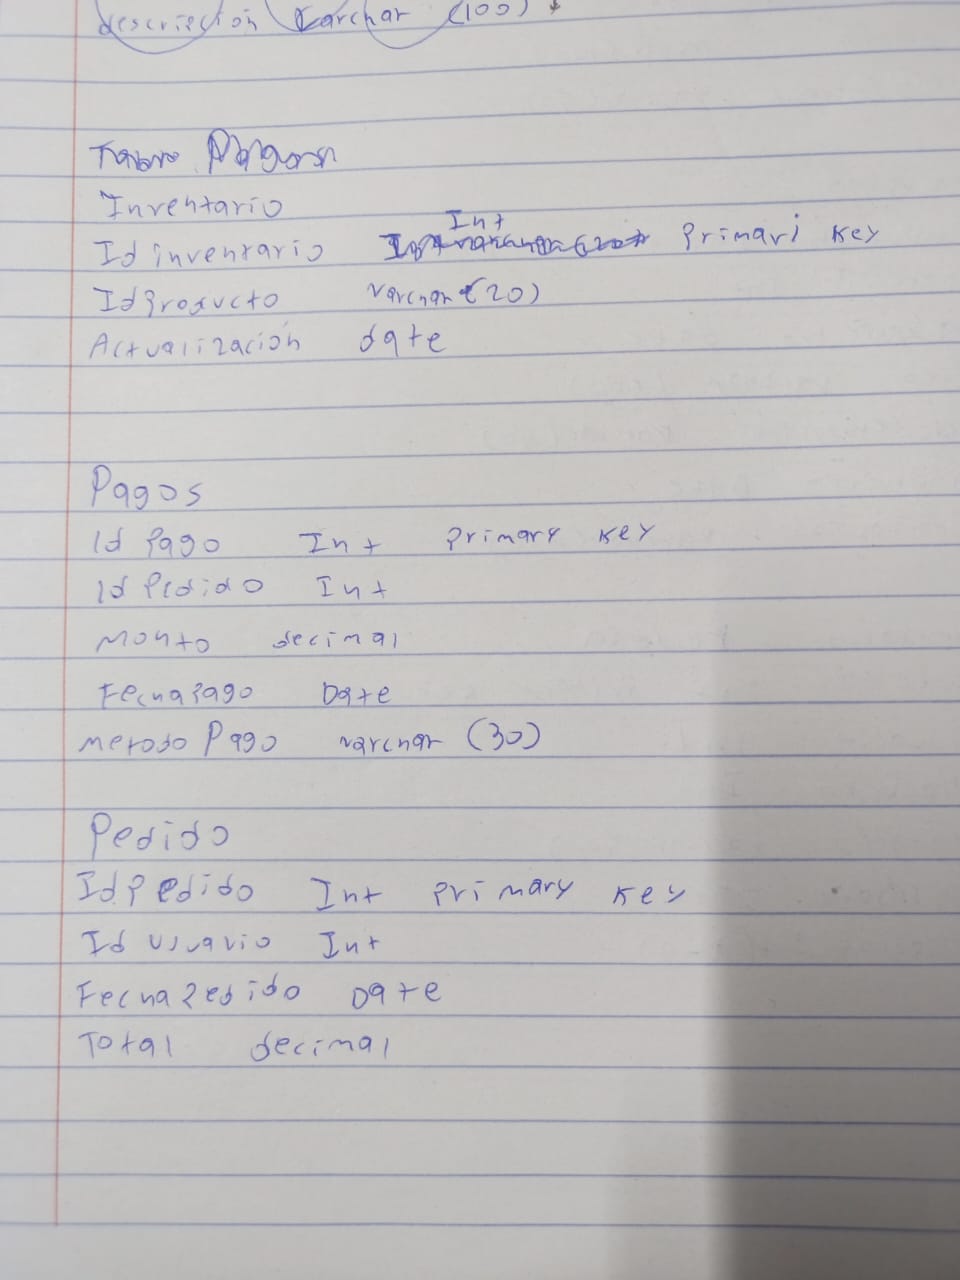 descripción varchar (100)
Inventario
Id inventario Int Primari Key
IdProducto varchar (20)
Actualización date
Pagos
Id Pago Int Primary Key
Id Pedido Int
Monto decimal
FechaPago Date
Metodo Pago varchar (30)
Pedido
Id Pedido Int Primary Key
Id usuario Int
FechaPedido Date
Total decimal